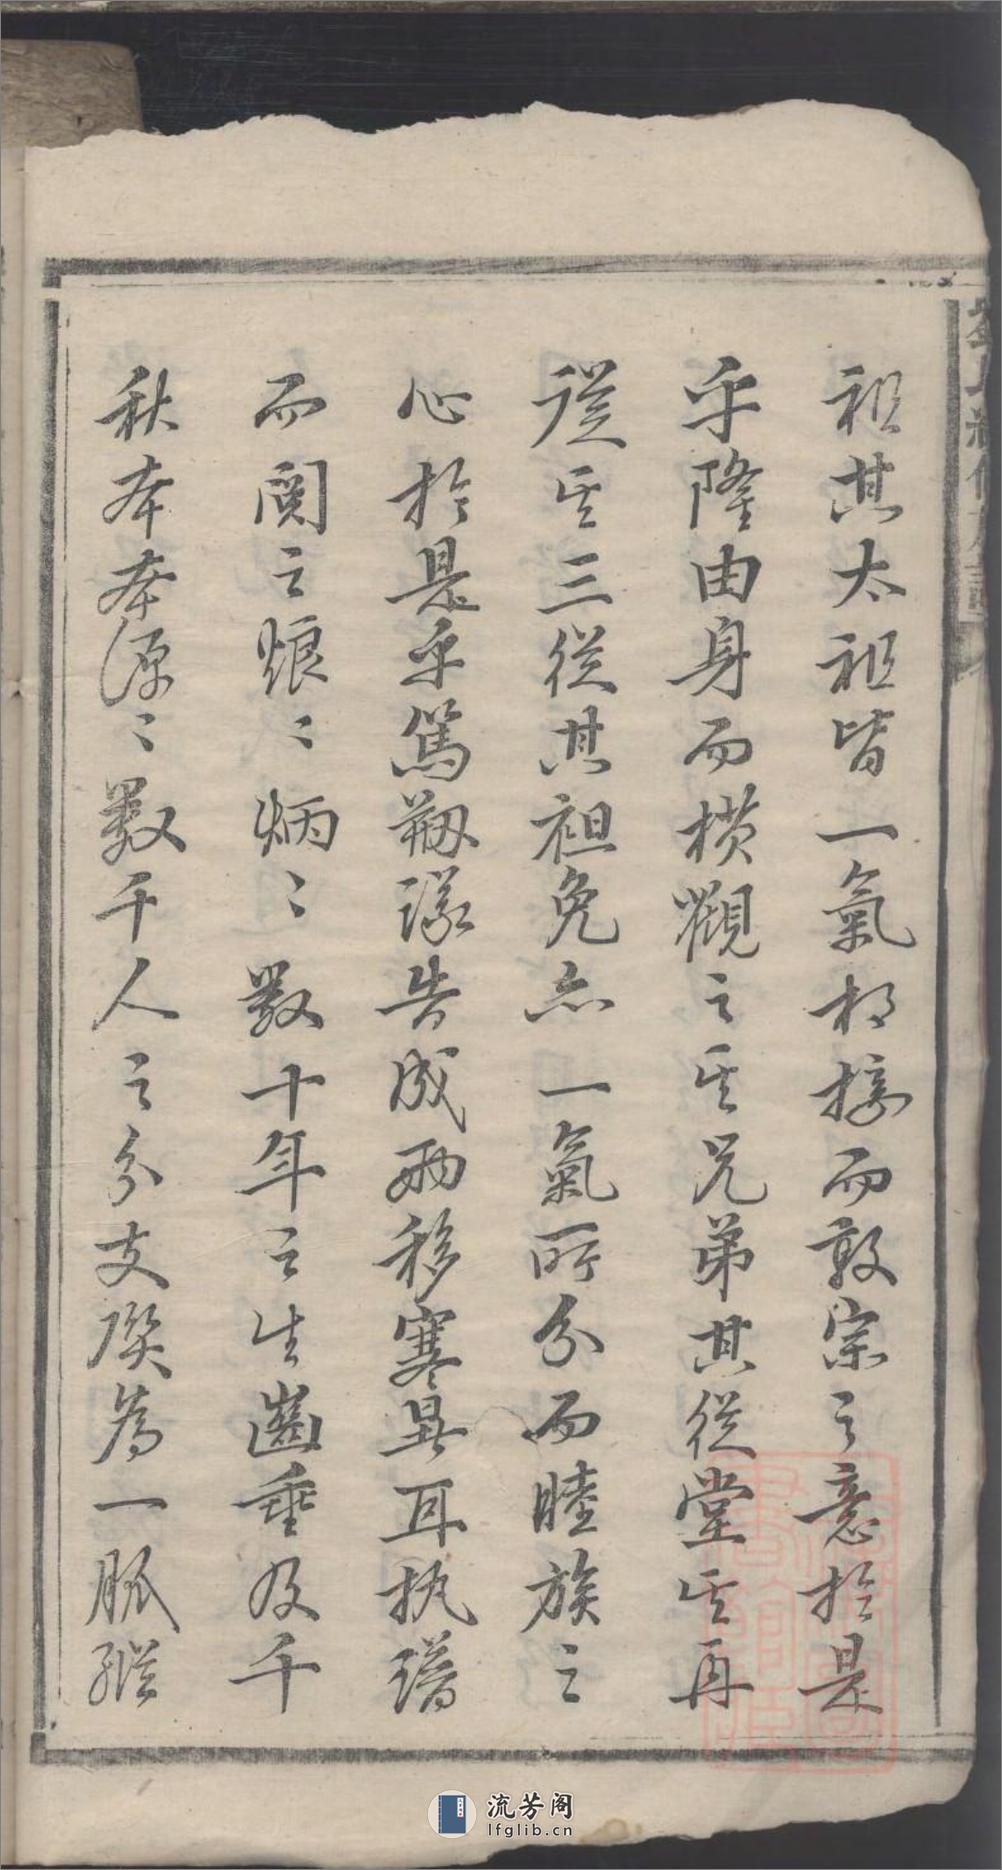 祖其太祖皆一氣相接而敦宗之意於是
乎隆由身而橫觀之其兄弟其從堂其再
從其三從其祖免亦一氣所分而睦族之
心於是乎篤剏議告成兩移寒暑耳執譜
而閱之烺〻炳〻數十年之生齒垂及千
秋本本源〻數千人之分支聯為一脈縱
流芳阁
lfglib.cn